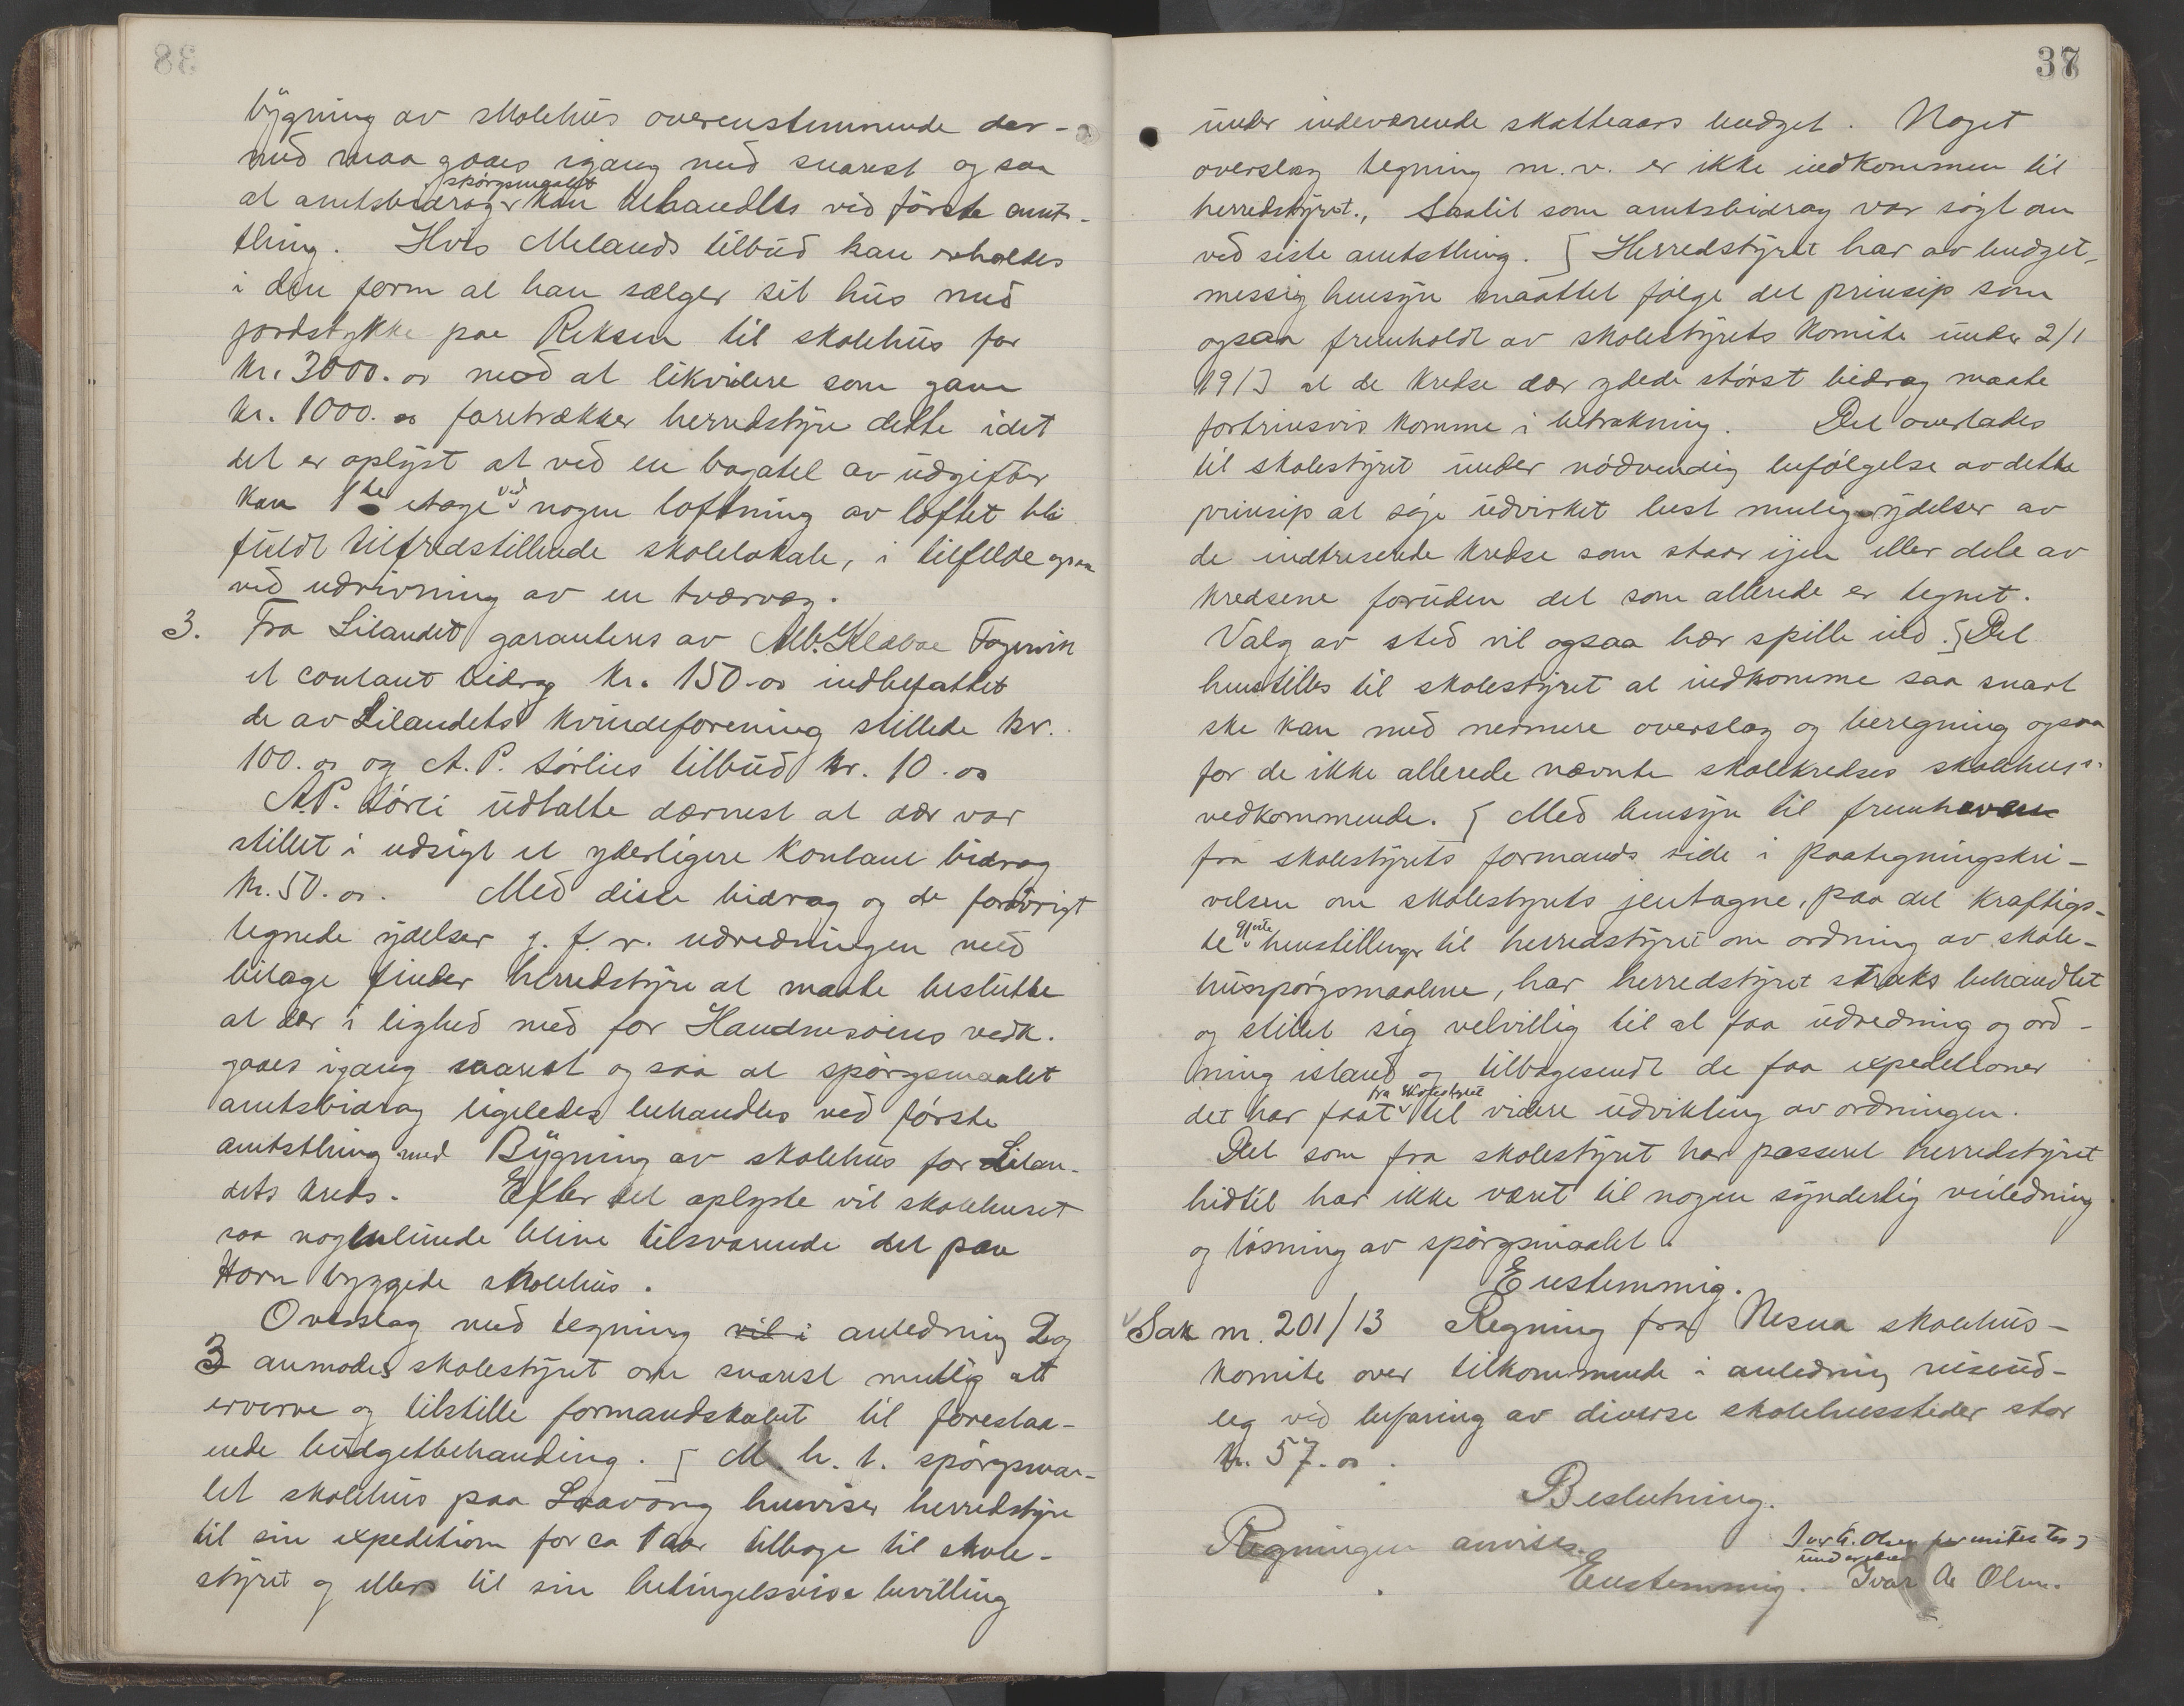 bygning av skolehus overensstemmende der-
med maa gaaes igang med snarest og saa
at amtsbidrags spørgsmaalet kan behandles ved første amts-
thing. Hvis Melands tilbud kan erholdes
i den form at han sælger sit hus med
jordstykke paa Reksen til skolehus for
kr. 3000.00 mod at likvidere som gave
kr. 1000.00 foretrækker herredstyre dette idet
det er oplyst at ved en bagatel av udgifter
kan 1ste etage ved nogen loftning av loftet bli
fuldt tilfredstillende skolelokale, i tilfelde ogsaa
ved udrivning av en tværvæg.
3. Fra Lilandet garanteres av Alb. Klæboe Fagervik
et contant bidrag kr. 150.00 indbefattet
de av Lilandets kvindeforening stillede kr.
100.00 og A. P. Sørlies tilbud kr. 10.00
A.P. Sørli udtalte dærnest at dær var
stillet i udsigt et yderligere kontant bidrag
kr. 50.00. Med disse bidrag og de forøvrigt
tegnede ydelser j. f. r. udredningen med
bilage finder herredstyre at maatte beslutte
at dær i lighed med for Handnesøiens vedk.
gaaes igang snarest og saa at spørgsmaalet
amtsbidrag ligeledes behandles ved første
amtsthing med Bygning av skolehus for Lilan-
dets kreds. Efter det oplyste vil skolehuset
saa nogenlunde blive tilsvarende det paa
Horn byggede skolehus.
Overslag med tegning vil i anledning 2 og
3 anmodes skolestyret om snarest mulig at
erverve og tilstille formandskabet til forestaa-
ende budgetbehanding. § M. h. t. spørgsmaa-
let skolehus paa Laavong henviser herredstyre
til sin expedition for ca 1 aar tilbage til skole-
styret og ellers til sin betingelsesvise bevilling
37
under indeværende skatteaars budget. Noget
overslag tegning m. v. er ikke indkommen til
herredstyret., Saalit som amtsbidrag var søgt om
ved siste amtsthing. § Herredstyret har av budget-
messig hensyn maattet følge det prinsip som
ogsaa fremholdt av skolestyrets komite under 2/1
1913 at de kredse dær ydede størst bidrag maatte
fortrinsvis komme i betrakning. Det overlades
til skolestyret under nødvendig befølgelse av dette
prinsip at søge udvirket best mulig ydelser av
de indtreserte kredse som staar igjen eller dele av
kredsene foruden det som allerede er tegnet.
Valg av sted vil ogsaa hær spille ind. § Det
henstilles til skolestyret at indkomme saa snart
ske kan med nermere overslag og beregning ogsaa
for de ikke allerede nævnte skolekredses skolehuss.
vedkommende. § Med hensyn til fremhevelse
fra skolestyrets formands side i paategningskri-
velsen om skolestyrets jentagne, paa det kraftigs-
te gjorte henstillinger til herredstyret om ordning av skole-
husspørgsmaalene, har herredstyret straks behandlet
og stillet sig velvillig til at faa udredning og ord-
ning istand og tilbagesendt de faa expeditioner
det har faat fra skolestyret til videre udvikling av ordningen.
Det som fra skolestyret har passeret herredstyret
hidtil har ikke været til nogen synderlig veiledning
og løsning av spørgsmaalet.
Enstemmig.
Sak nr. 201/13 Regning fra Nesna skolehus-
komite over tilkommende i anledning reiseud-
leg ved befaring av diverse skolehussteder stor
kr. 57.00.
Beslutning.
Regningen anvises.
Ivar A. Olsen
Enstemmig. Ivar A. Olsen.